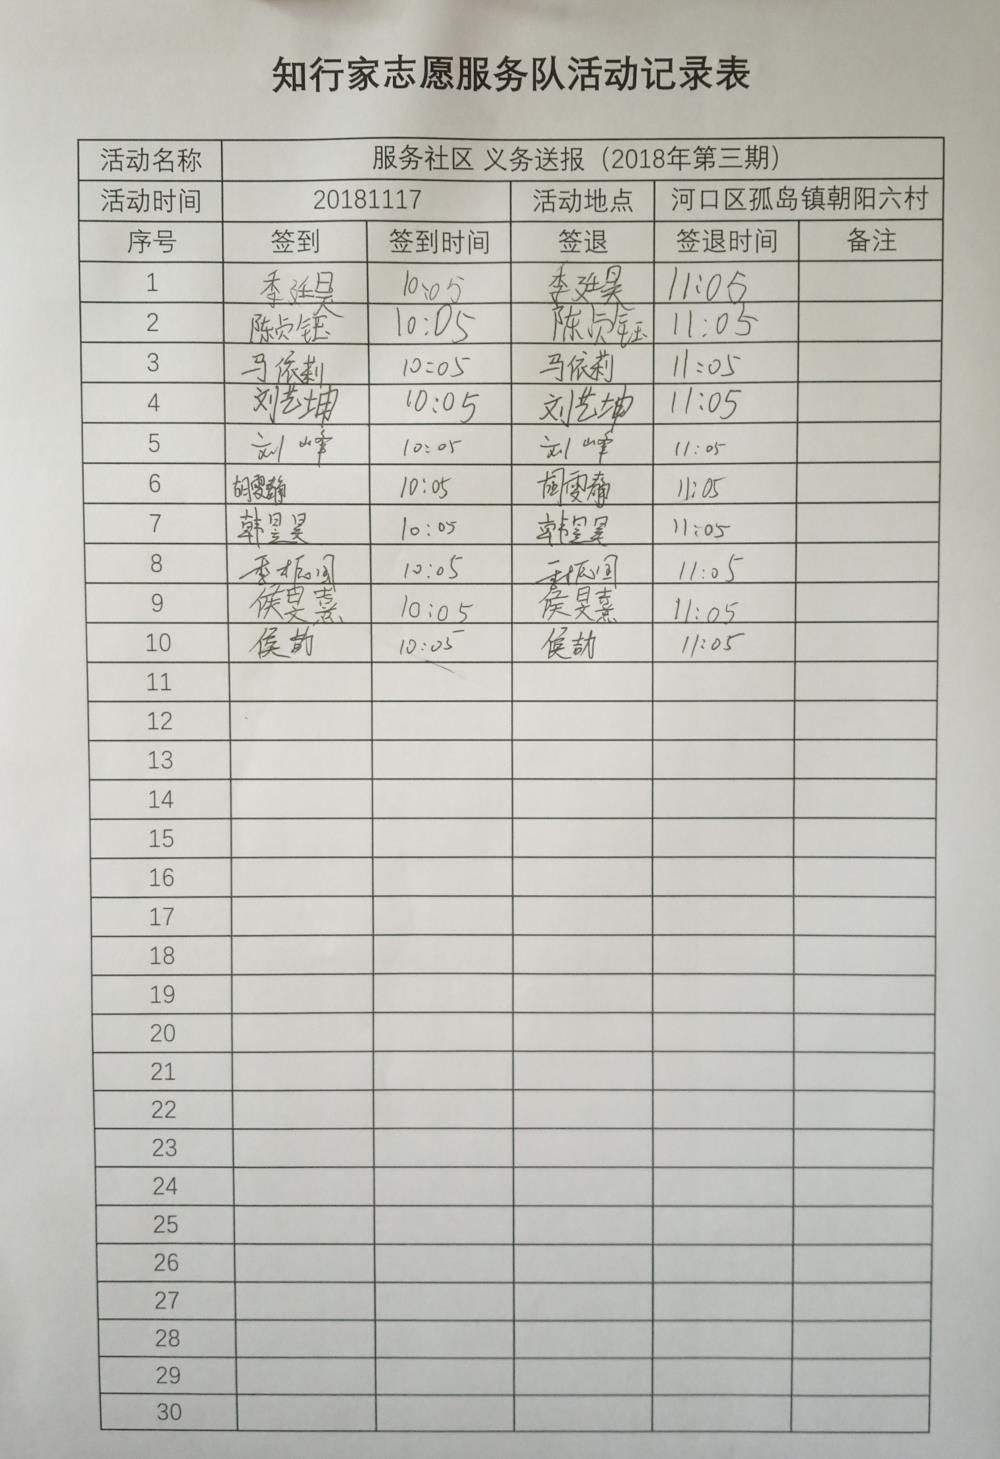 知行家志愿服务队活动记录表
活动名称 服务社区 义务送报（2018年第三期）
活动时间 20181117 活动地点 河口区孤岛镇朝阳六村
序号 签到 签到时间 签退 签退时间 备注
1 季延昊 10:05 季延昊 11:05
2 陈贞钰 10:05 陈贞钰 11:05
3 马依莉 10:05 马依莉 11:05
4 刘艺坤 10:05 刘艺坤 11:05
5 刘峰 10:05 刘峰 11:05
6 胡雯静 10:05 胡雯静 11:05
7 韩昱昊 10:05 韩昱昊 11:05
8 10:05 11:05
9 侯旻熹 10:05 侯旻熹 11:05
10 侯劼 10:05 侯劼 11:05
11
12
13
14
15
16
17
18
19
20
21
22
23
24
25
26
27
28
29
30